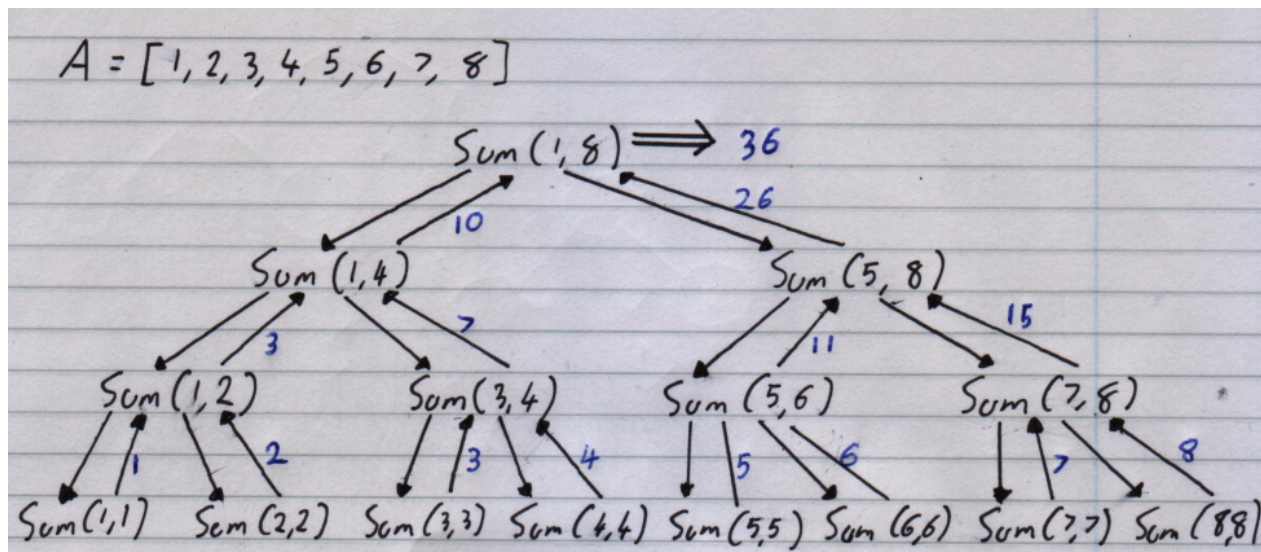 A = [1, 2, 3, 4, 5, 6, 7, 8]
Sum (1, 8) ⟹ 36
10 26
Sum (1, 4) Sum (5, 8)
3 7 11 15
Sum (1, 2) Sum (3, 4) Sum (5, 6) Sum (7, 8)
1 2 3 4 5 6 7 8
Sum (1, 1) Sum (2, 2) Sum (3, 3) Sum (4, 4) Sum (5, 5) Sum (6, 6) Sum (7, 7) Sum (8, 8)